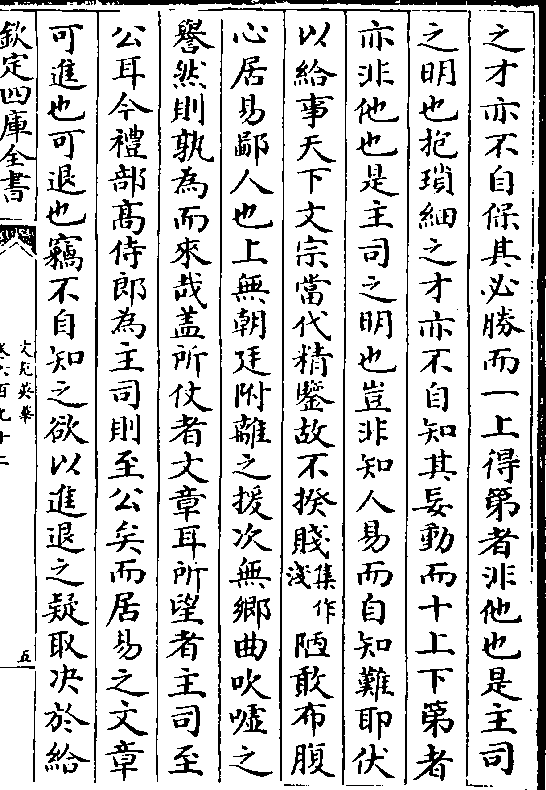 之才亦不自保其必勝而一上得第者非他也是主司
之明也抱瑣細之才亦不自知其妄動而十上下第者
亦非他也是主司之明也豈非知人易而自知難耶伏
以給事天下文宗當代精鑒故不揆賤集作淺陋敢布腹
心居易鄙人也上無朝廷附離之援次無鄉曲吹噓之
譽然則孰為而來哉盖所仗者文章耳所望者主司至
公耳今禮部髙侍郎為主司則至公矣而居易之文章
可進也可退也竊不自知之欲以進退之疑取决於給
欽定四庫全書
文苑英華
五